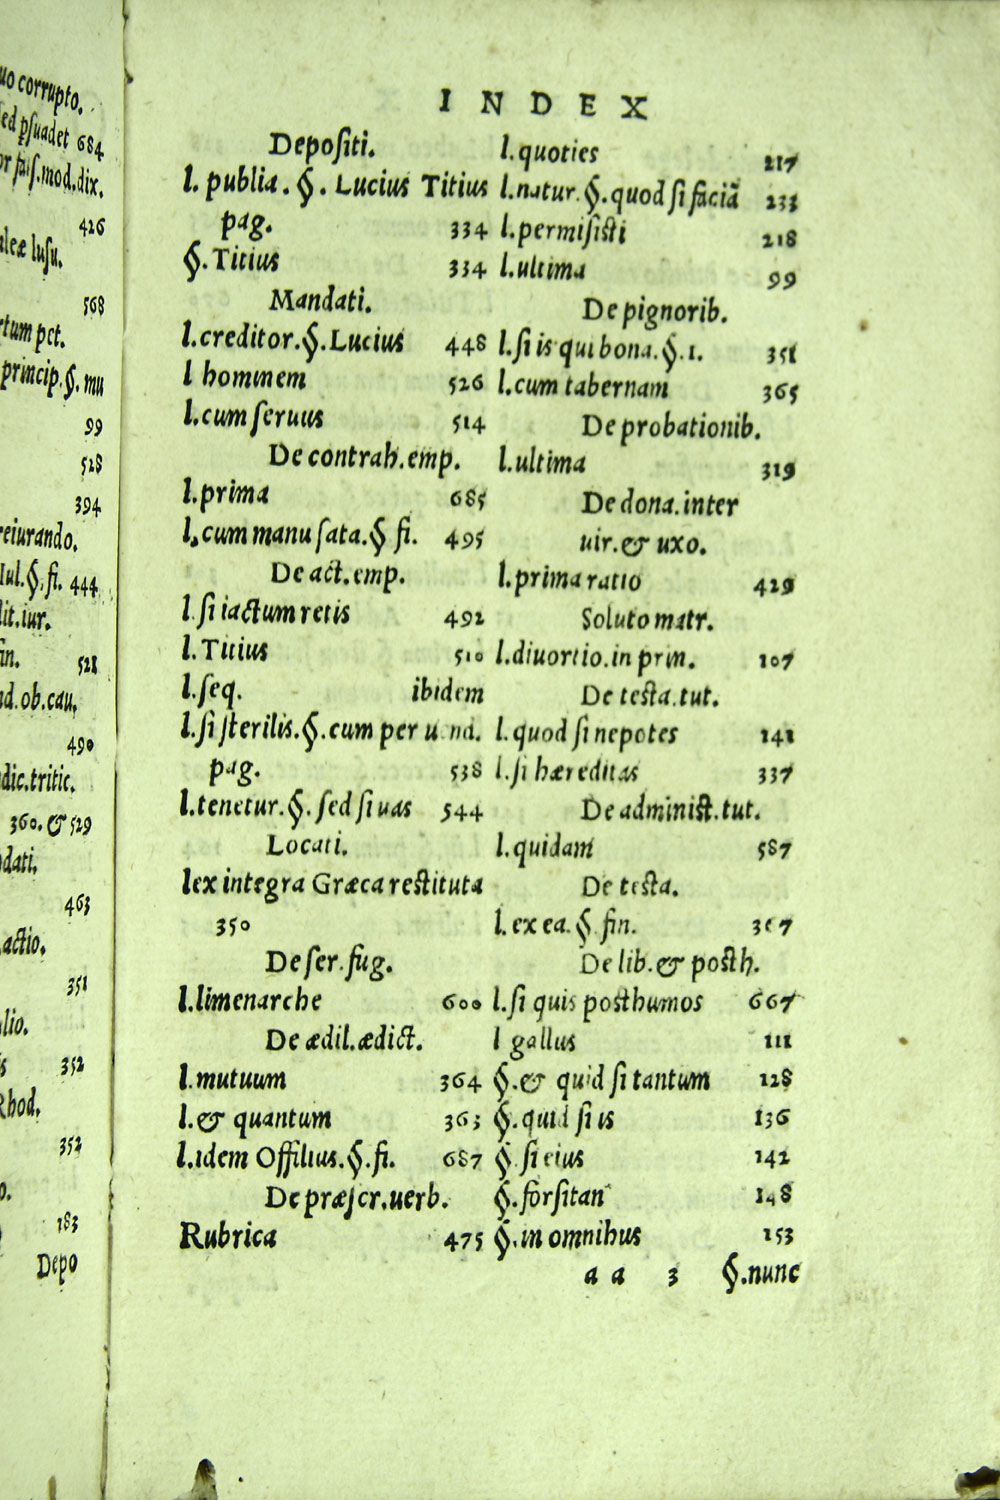 uo corrupto.
ed p̱suadet 684
mod.dix.
426
leæ lusu.
568
rtum pct.
princip.§. mu
99
528
394
reiurando.
Iul.§.fi. 444
lit.iur.
in. 521
ad.ob.cau.
490
dic.tritic.
360.& 529
dati.
463
actio.
351
lio.
352
Rhod.
352
o.
183
Depo
INDEX
Depositi.
l. publia. §. Lucius Titius
pag. 334
§. Titius 334
Mandati.
l.creditor.§.Lucius 448
l hominem 526
l.cum seruus 514
De contrah.emp.
l.prima 685
l.cum manu sata.§ fi. 495
De act.emp.
l.si iactum retis 492
l.Titius 510
l.seq. ibidem
l.si sterilis.§.cum per u nd.
pag. 538
l.tenetur.§.sed si uas 544
Locati.
lex integra Græca restituta
350
De ser.fug.
l.limenarche 600
De ædil.ædict.
l.mutuum 364
l.& quantum 363
l.idem Offilius.§.fi. 687
De præscr.uerb.
Rubrica 475
l.quoties 217
l.natur.§.quod si faciā 233
l.permisisti 218
l.ultima 99
De pignorib.
l.si is qui bona.§.1. 351
l.cum tabernam 365
De probationib.
l.ultima 319
De dona.inter
uir.& uxo.
l.prima ratio 429
Soluto matr.
l.diuortio.in prin. 107
De testa.tut.
l.quod si nepotes 141
l.si hæreditas 337
De administ.tut.
l.quidam 587
De testa.
l.ex ea.§ fin.
De lib.& posth.
l.si quis posthumos 667
l gallus 111
§.& quid si tantum 128
§.quid si is 136
§ si eius 142
§.forsitan 148
§.in omnibus 153
a a 3 §.nunc